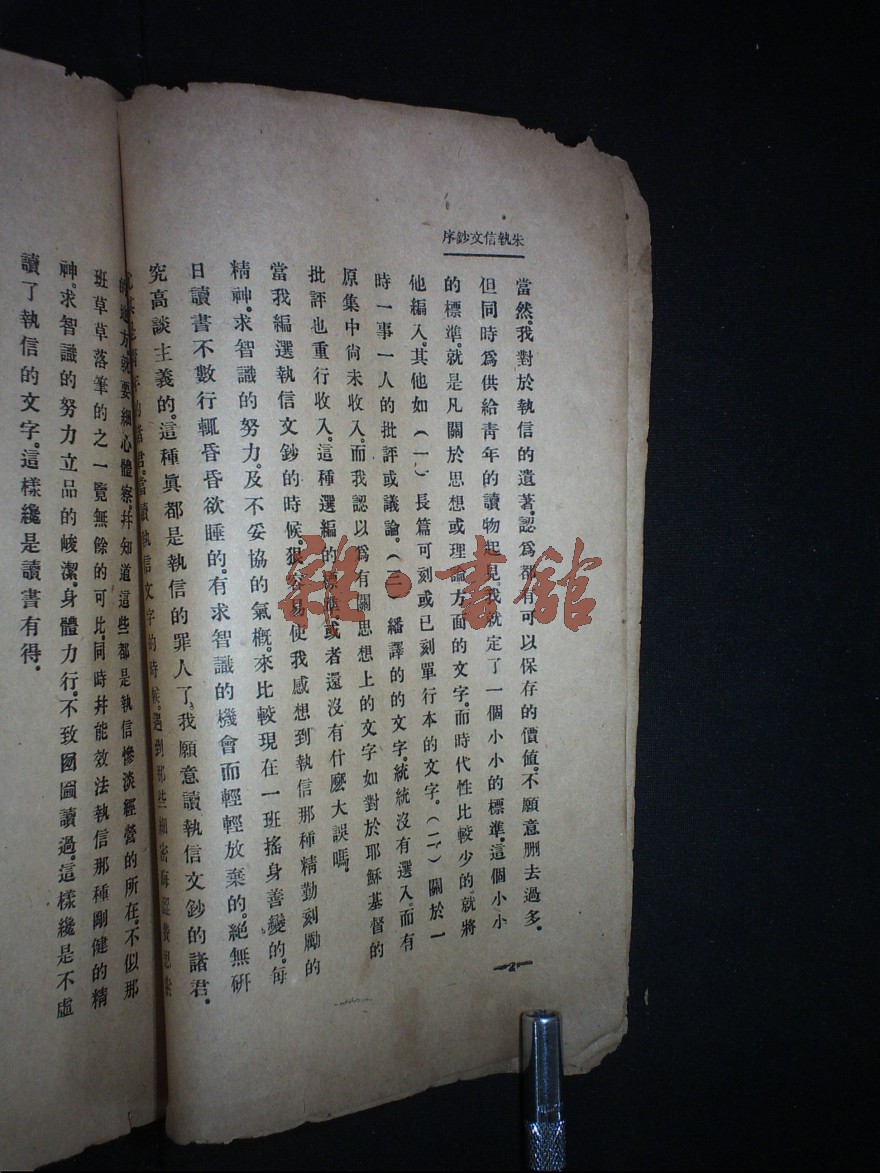 朱執信文鈔序
當然。我對於執信的遺著。認爲都有可以保存的價値。不願意删去過多。
但同時爲供給青年的讀物起見。我就定了一個小小的標準。這個小小
的標準。就是凡關於思想或理論方面的文字。而時代性比較少的就將
他編入。其他如(一)長篇可刻或已刻單行本的文字。(二)關於一
時一事一人的批評或議論。(三)繙譯的的文字。統統沒有選入。而有
原集中尙未收入。而我認以爲有關思想上的文字如對於耶穌基督的
批評也重行收入。這種選編的標準或者還沒有什麽大誤嗎。
當我編選執信文鈔的時候。狠容易使我感想到執信那種精勤刻勵的
精神。求智識的努力。及不妥協的氣槪。來比較現在一班搖身善變的。每
日讀書不數行輒昏昏欲睡的。有求智識的機會而輕輕放棄的。絕無研
究高談主義的。這種眞都是執信的罪人了。我願意讀執信文鈔的諸君。
諸君。當讀執信文字的時候。遇到那些細密
的地方。就要細心體察。幷知道這些都是執信慘淡經營的所在。不似那
班草草落筆的之一覽無餘的可比。同時幷能效法執信那種剛健的精
神。求智識的努力立品的峻潔。身體力行。不致囫圇讀過。這樣纔是不虛
讀了執信的文字。這樣纔是讀書有得。
2
雜·書館